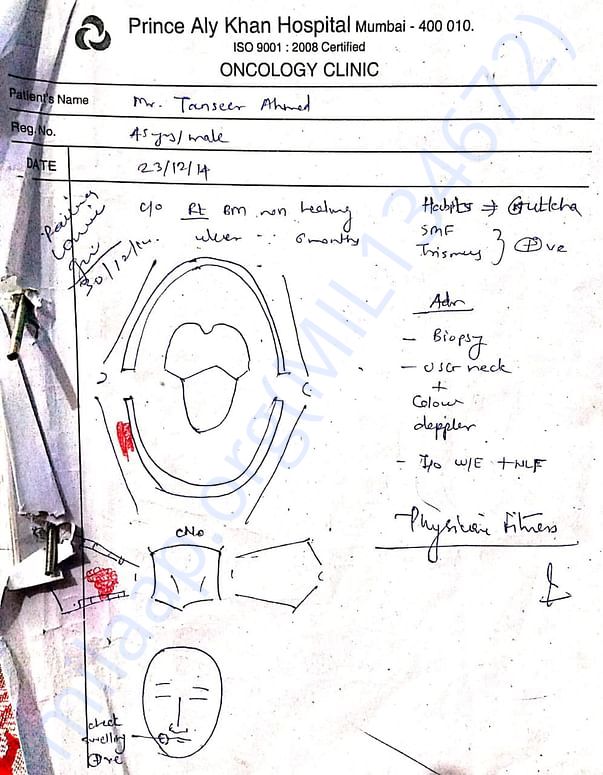 Prince Aly Khan Hospital Mumbai - 400 010.
ISO 9001 : 2008 Certified
ONCOLOGY CLINIC
Patient's Name Mr. Tanseer Ahmed
Reg. No. 45 yrs/male
DATE 23/12/14
c/o Rt BM non healing
ulver ∵ 6 months
30/12/14
Habits → Gutkha
SMF
Trismus } ⊕ve
Adv
- Biopsy
- USG neck
+
Colour
doppler
- I/o W/E + NLF
Physician Fitness
cN0
cheek
swelling
⊕ve
milaap.org(MIL134672)